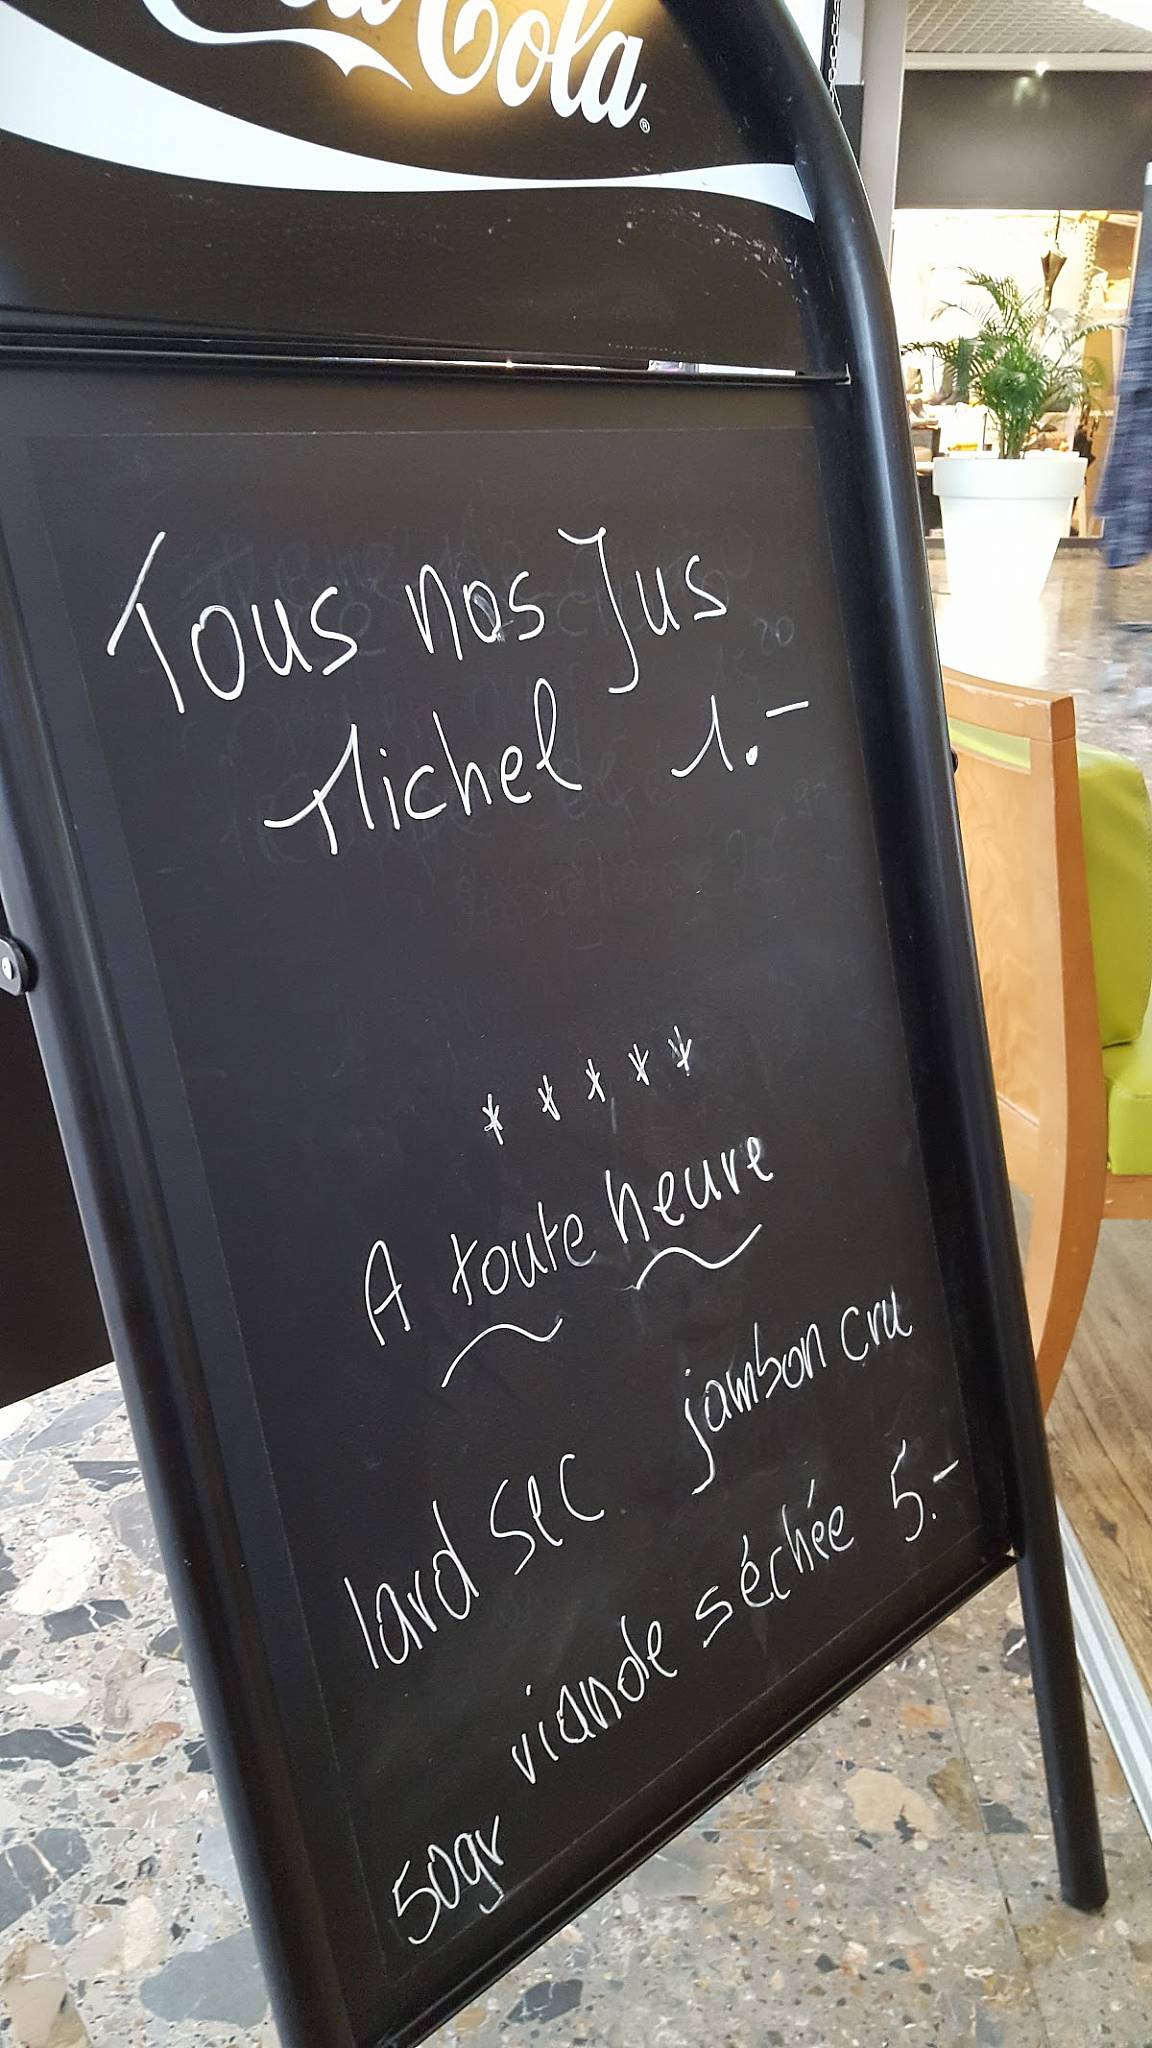 Cola®
Tous nos Jus
Michel 1.-
* * * * *
A toute heure
lard sec jambon cru
viande séchée 5.-
50gr